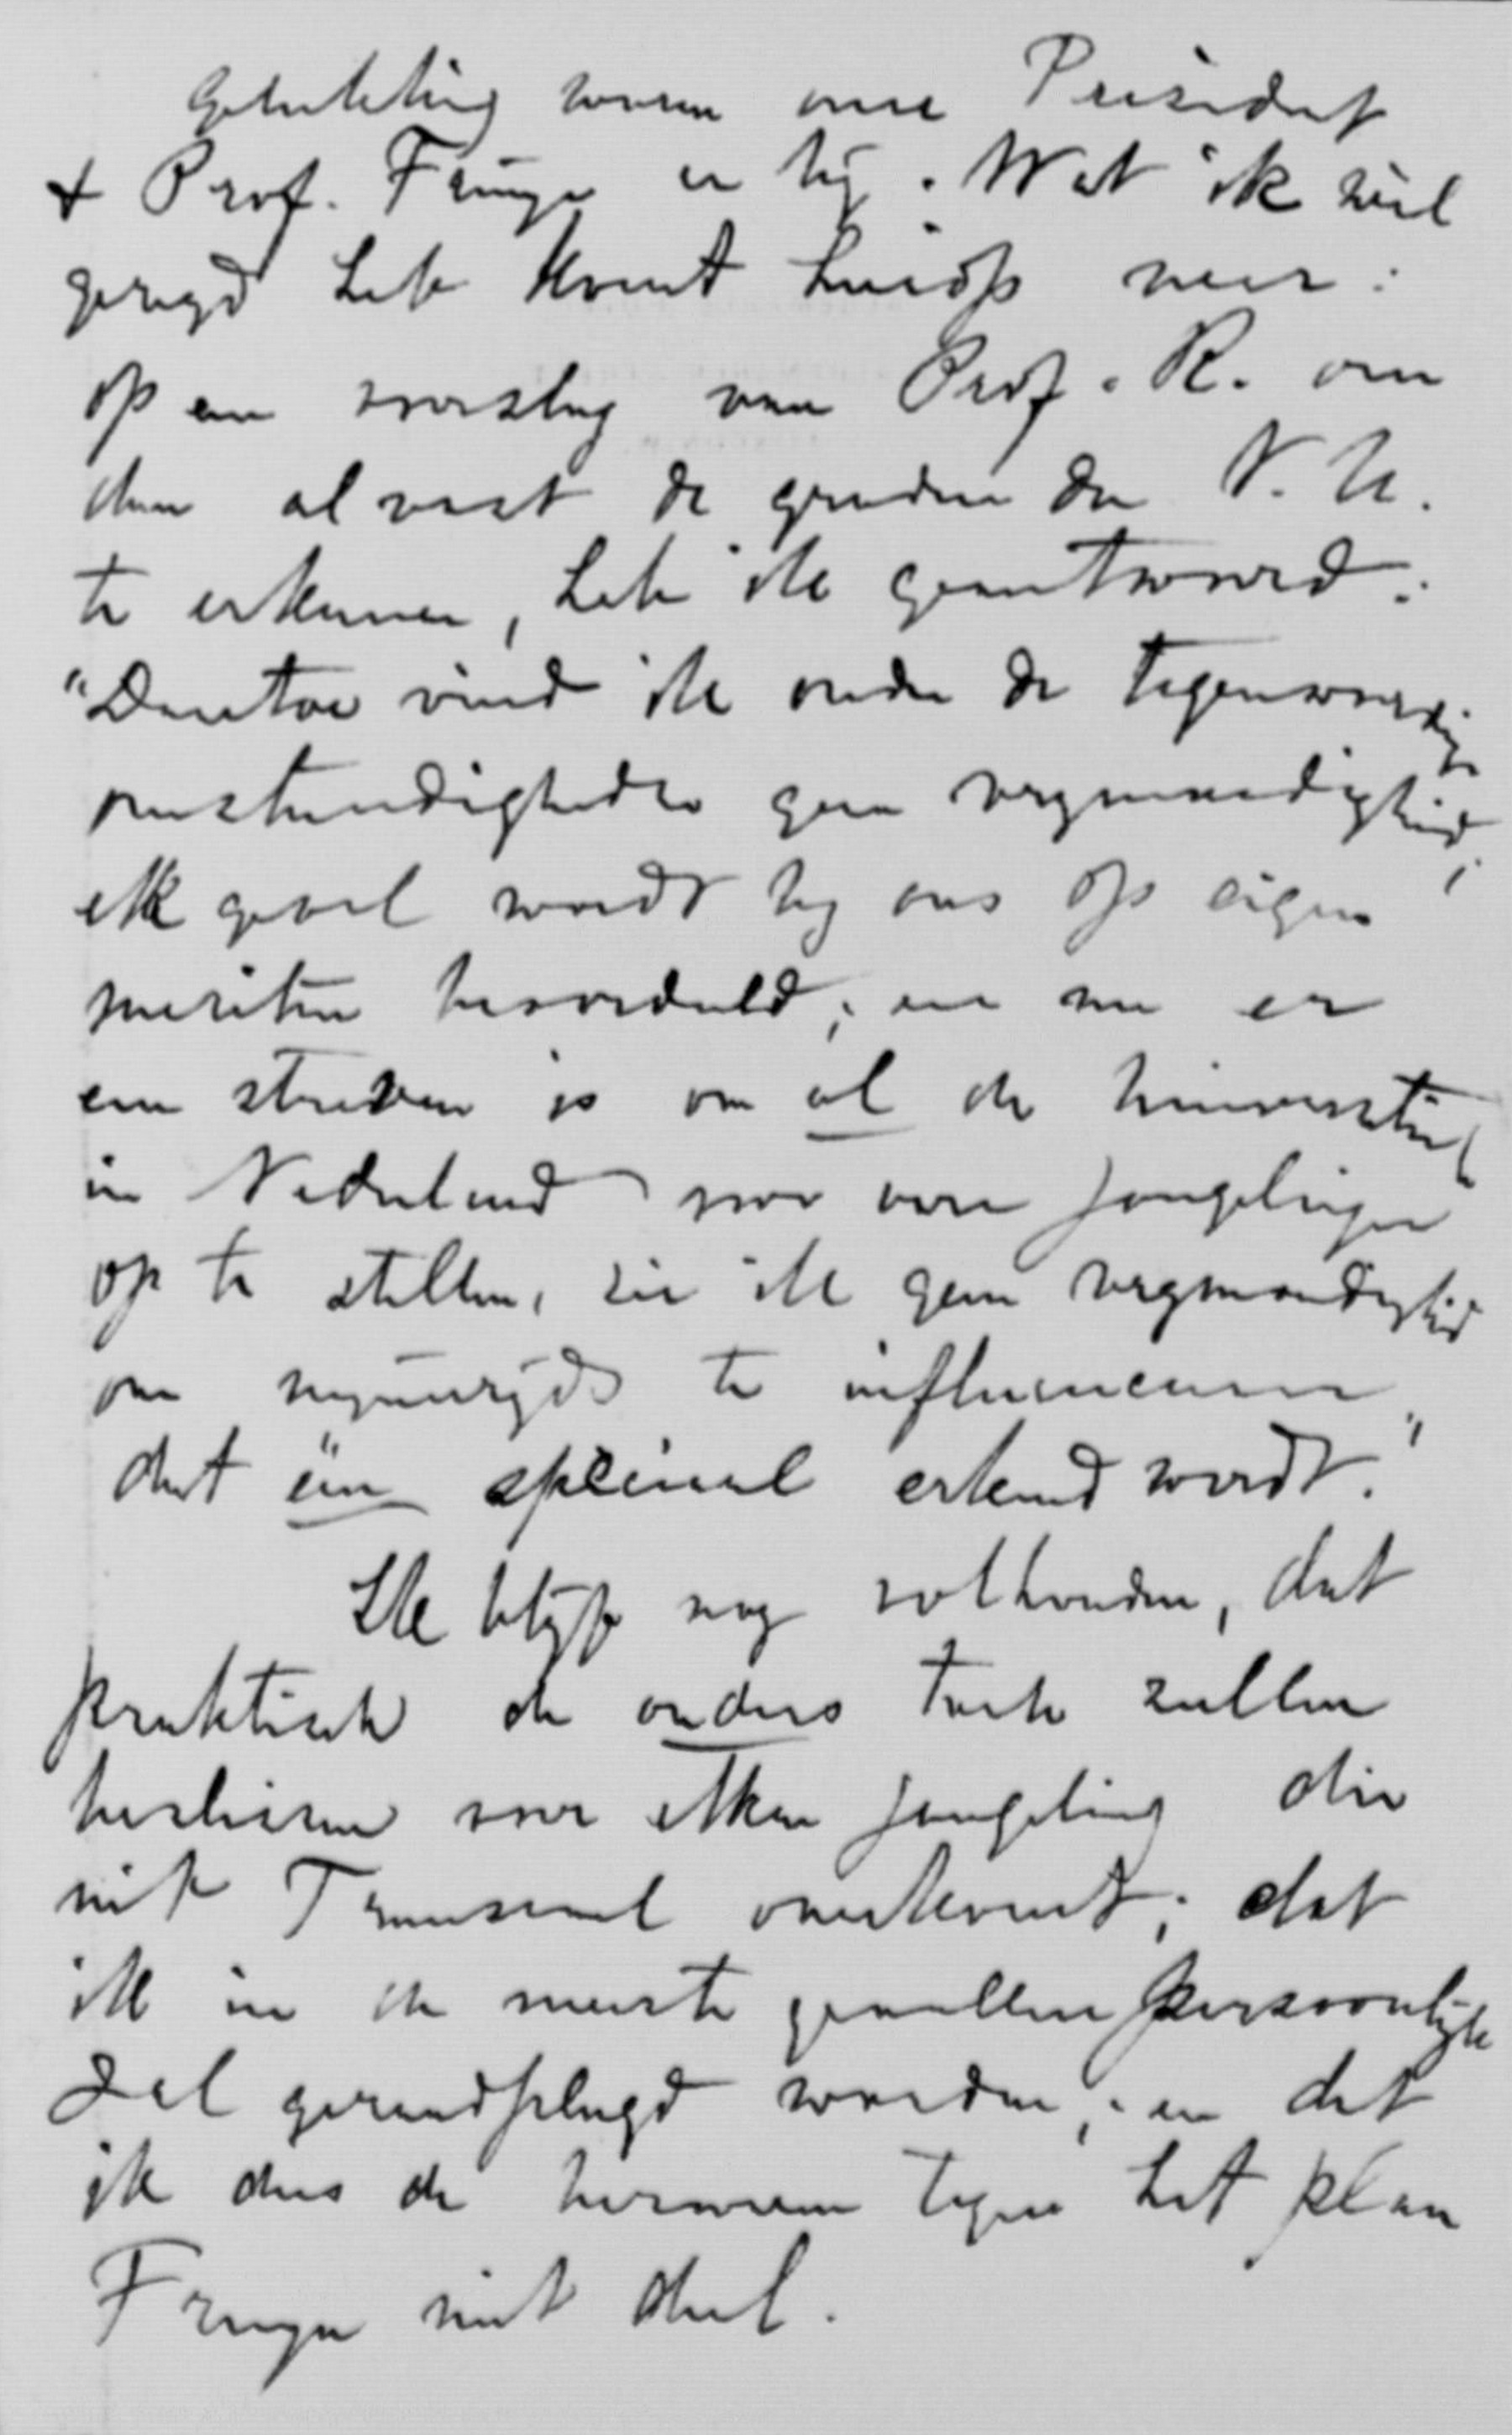 Gelukkig waren onze President
& Prof. Fruin er bij. Wat ik zeil
gezegd heb komt hierop neer:
op een voorslag van Prof. R. om
dan alvast de graden der V. U.
te erkennen, heb ik geantwoord:
"Daartoe vind ik onder de tegenwoordige
omstandigheden geen vrymoedigheid;
elk geval wordt by ons op eigen
meriten beoordeeld; en nu er
een streven is om al de Universiteiten
in Nederland voor onze jongelingen
op te stellen, zie ik geen vrymoedigheid
om mynerzyds te influenceeren,
dat één speciaal erkend wordt."
Ik blyf nog volhouden, dat
praktisch de ouders toch zullen
beslissen voor elken jongeling die
uit Transvaal overkomt; dat
ik in de meeste gevallen persoonlyk
zal geraadpleegd worden; en dat
ik dus de bezwaren tegen het plan
niet deel.